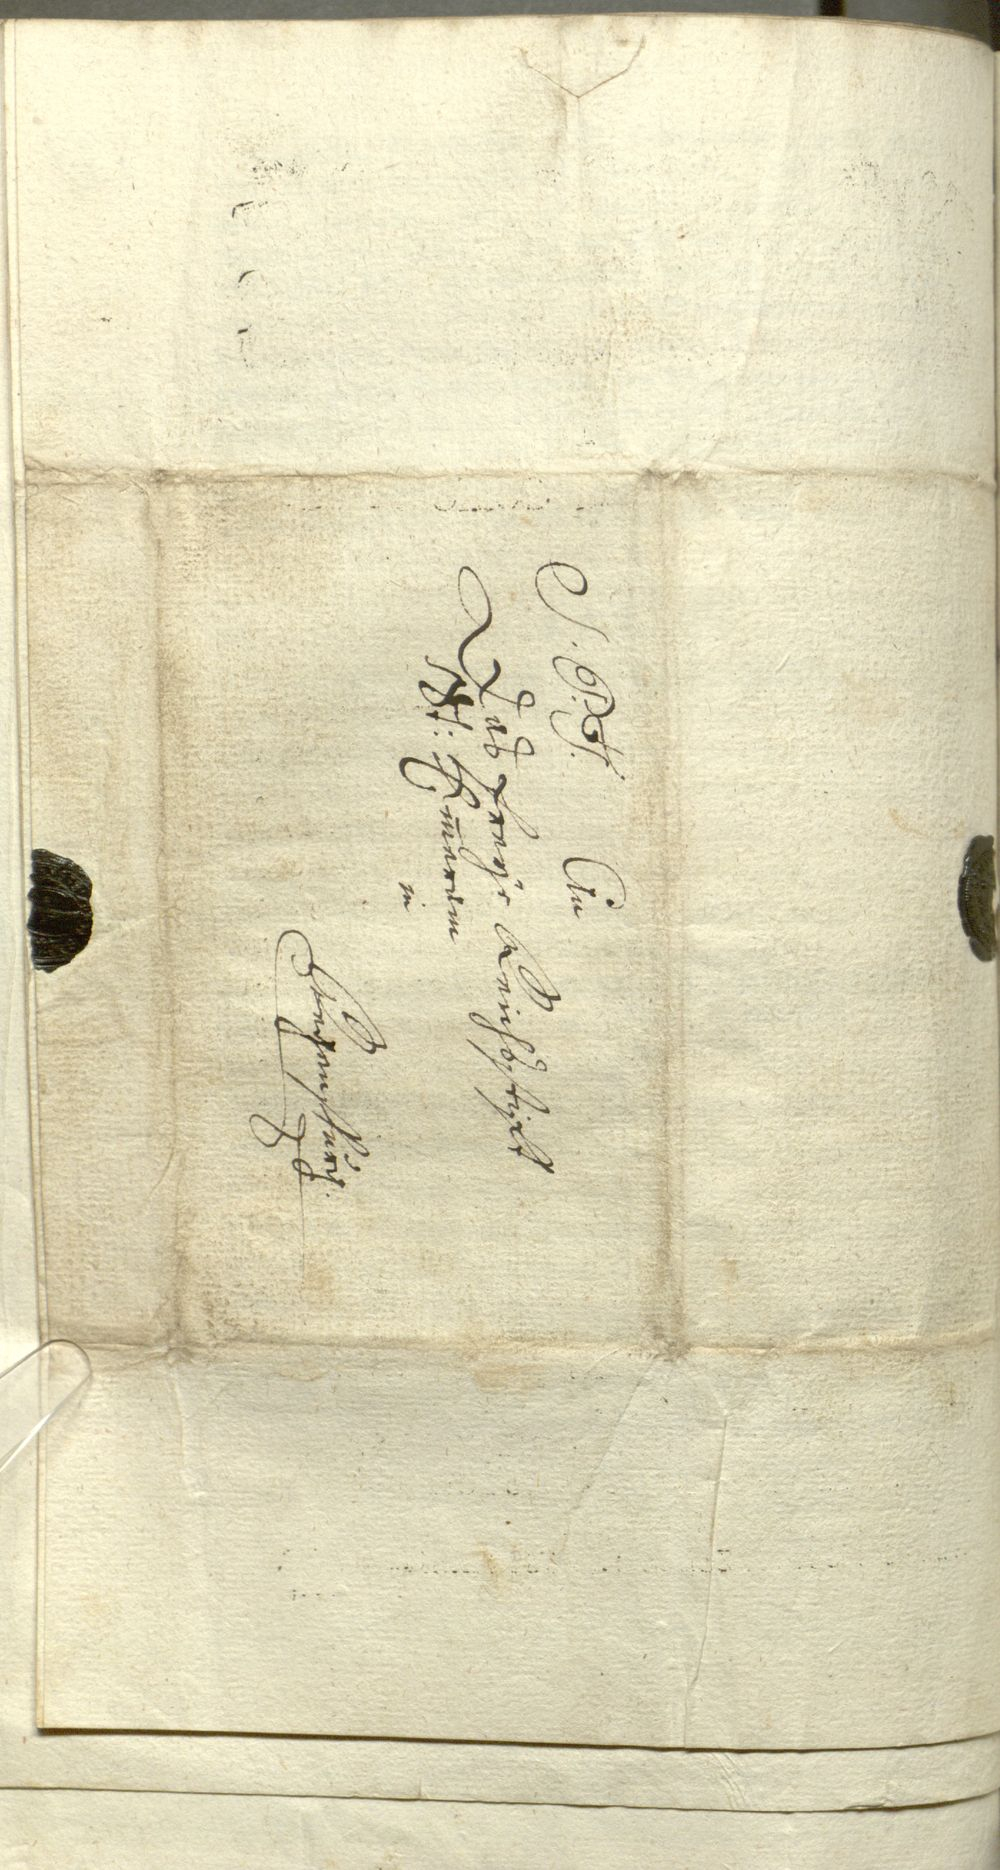 S. P. T.
An
Das freye Reichsstift
St: Em̄eram
in
Regenspurg.